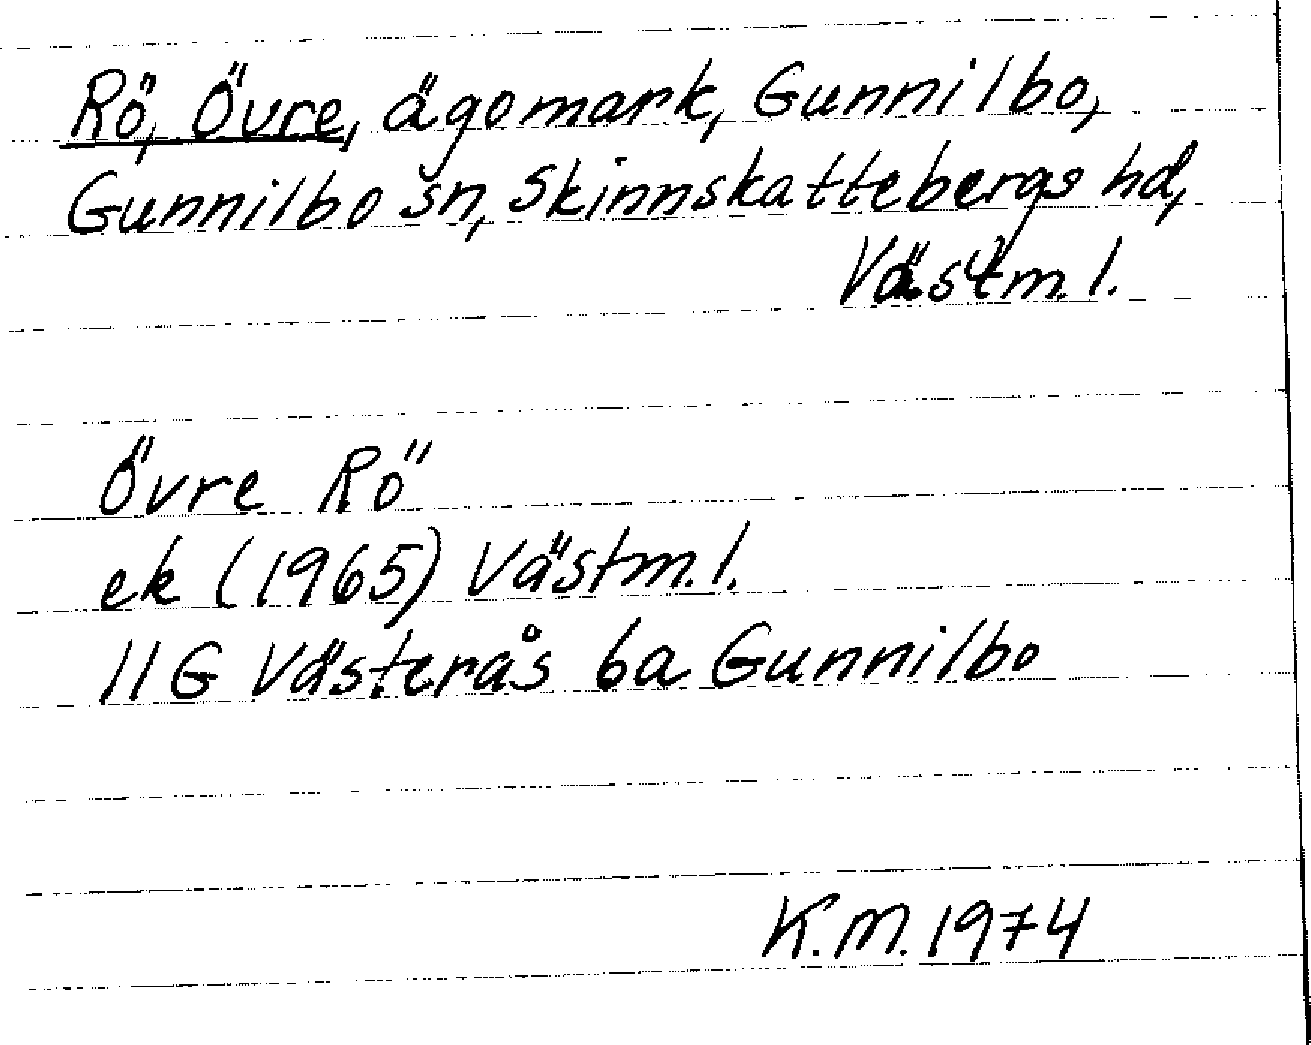 Rö, Övre, ägomark, Gunnilbo,
Gunnilbo sn, Skinnskattebergs hd,
Västm. l.
Övre Rö
ek (1965) Västm. l.
11G Västerås 6a Gunnilbo
K.M. 1974